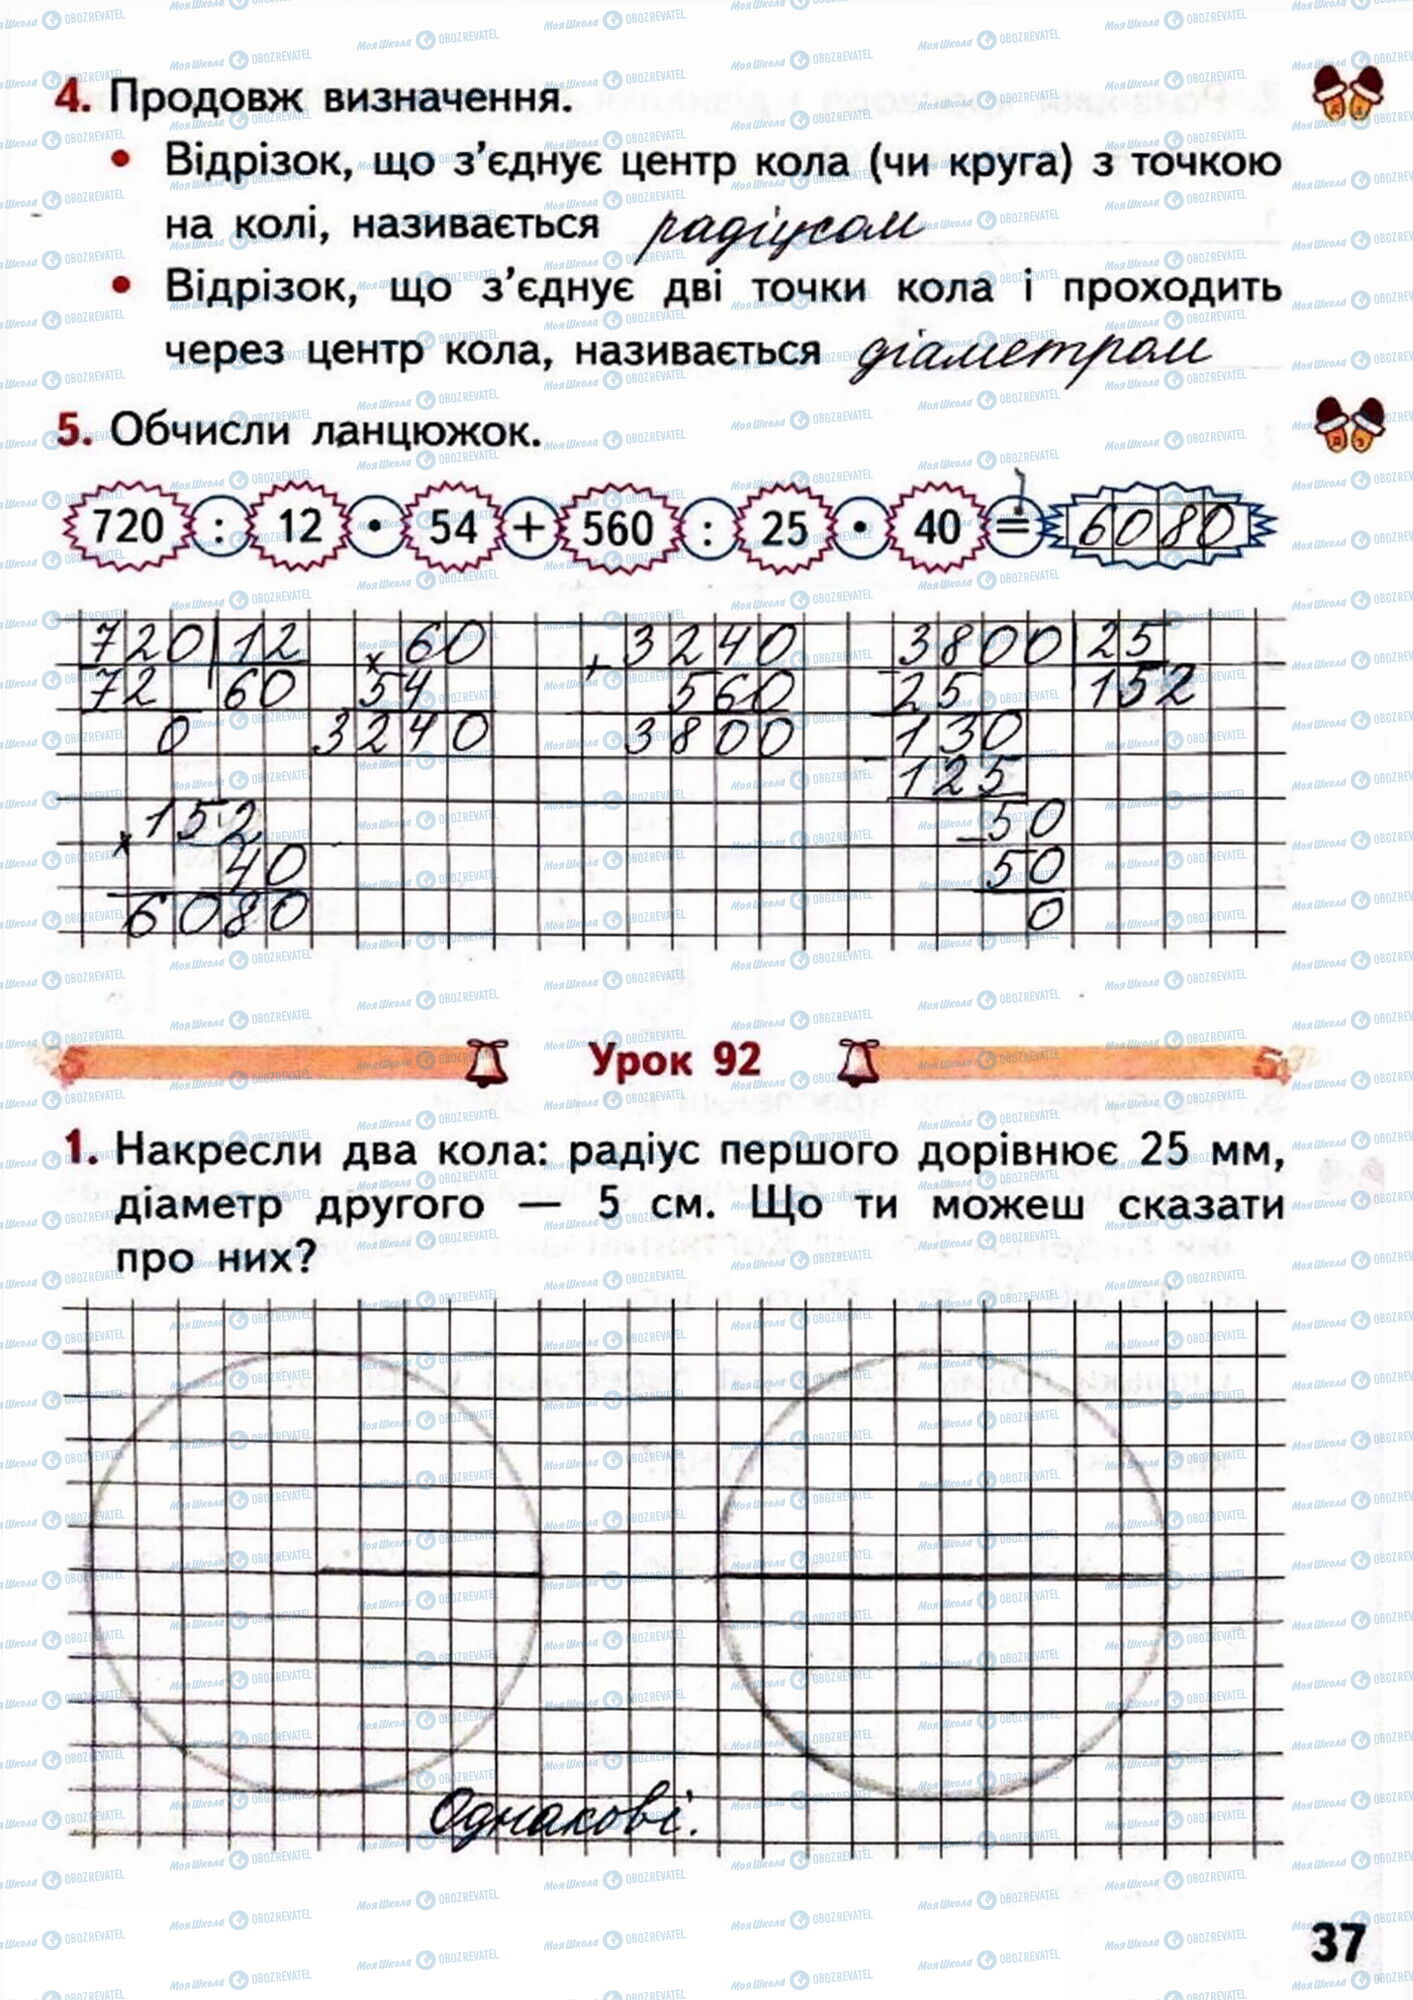 4. Продовж визначення.
• Відрізок, що з'єднує центр кола (чи круга) з точкою
на колі, називається радіусом
• Відрізок, що з'єднує дві точки кола і проходить
через центр кола, називається діаметром
5. Обчисли ланцюжок.
720 : 12 • 54 + 560 : 25 • 40 = 6080
720 12 60 3240 3800 25
72 60 × 54 + 560 - 25 152
0 3240 3800 130
- 125
152 50
× 40 - 50
6080 0
Урок 92
1. Накресли два кола: радіус першого дорівнює 25 мм,
діаметр другого — 5 см. Що ти можеш сказати
про них?
Однакові.
37
МояШкола OBOZREVATEL